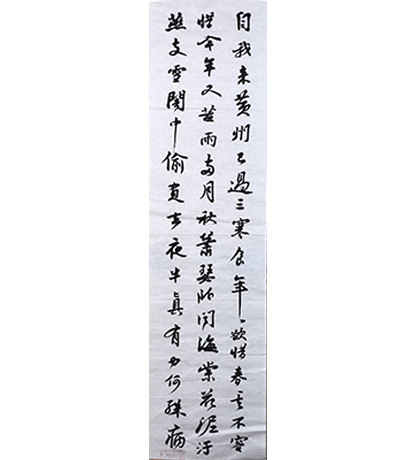 自我來黃州已過三寒食年〻欲惜春〻去不容
惜今年又苦雨兩月秋蕭瑟卧聞海棠花泥汙
燕支雪闇中偷負去夜半真有力何殊病